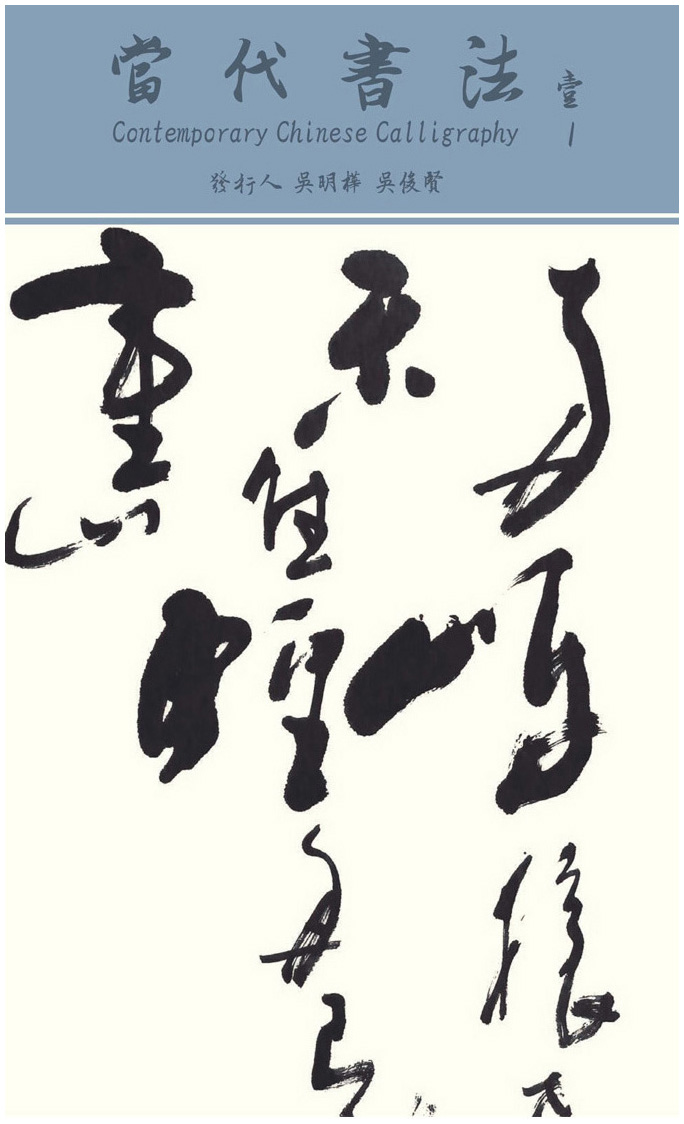 當代書法 壹
Contemporary Chinese Calligraphy 1
發行人 吳明樺 吳俊賢
兩岸猿
不住輕舟已
重山